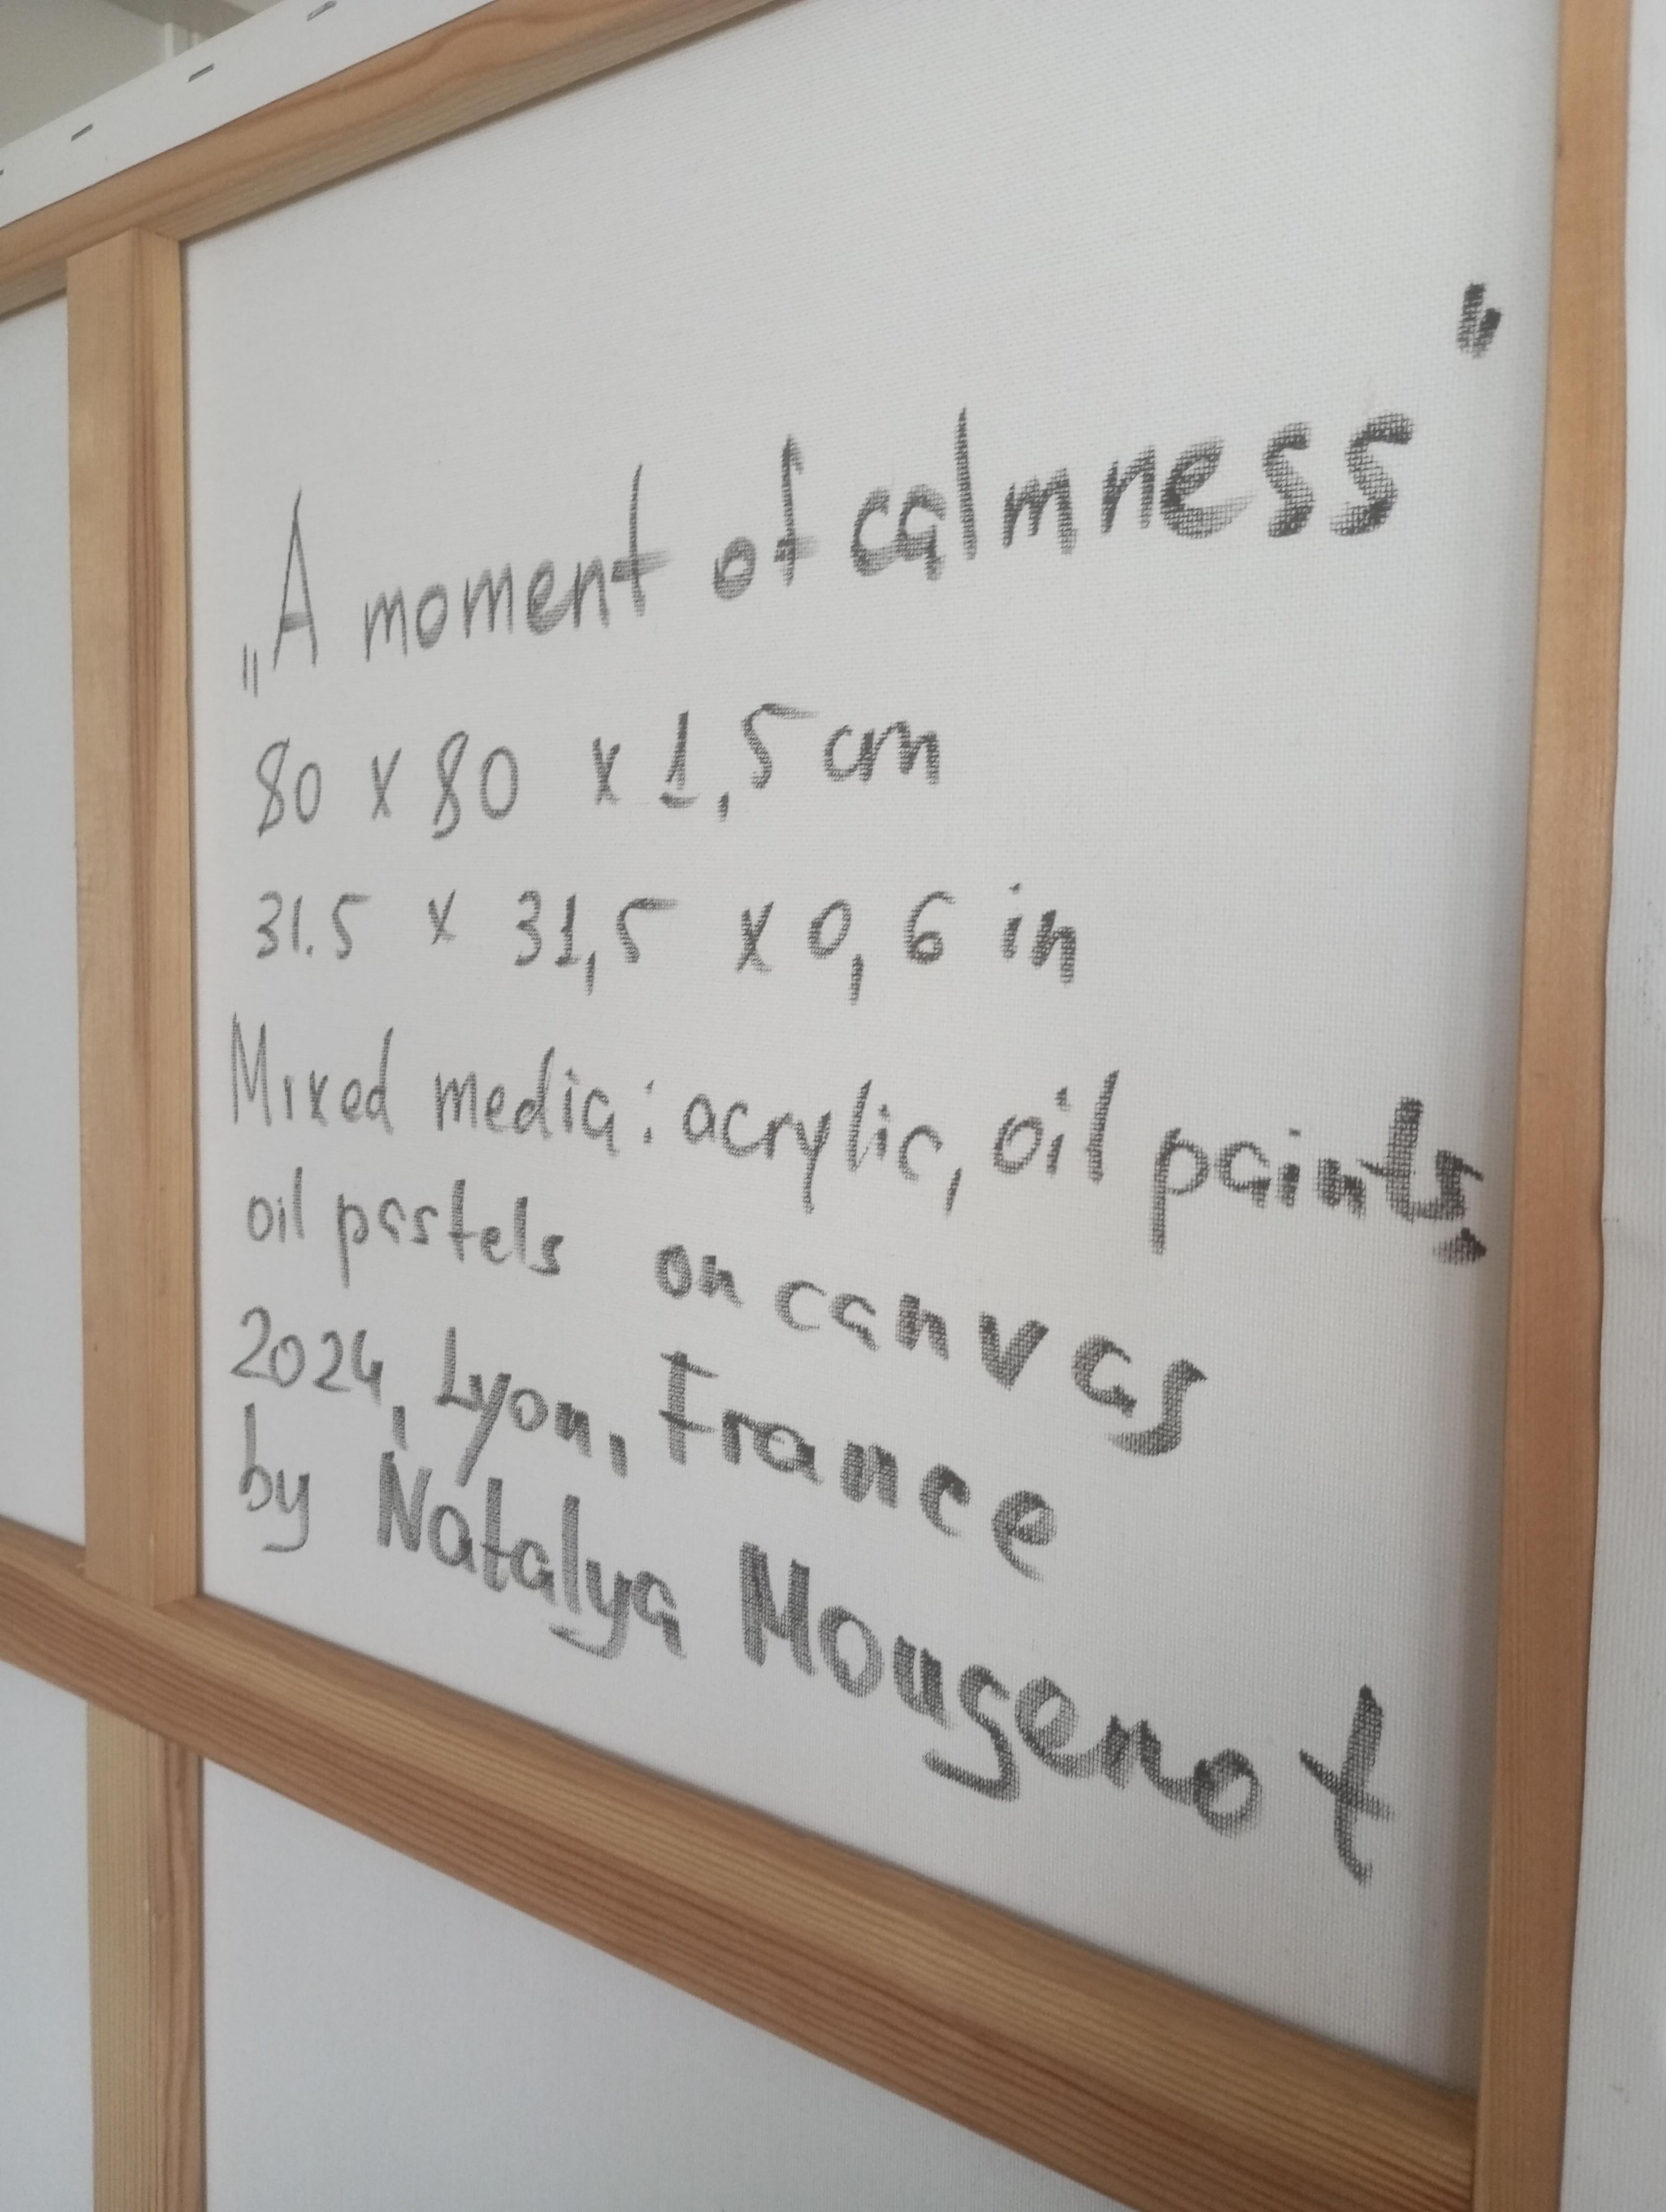 „A moment of calmness"
80 x 80 x 1,5 cm
31.5 x 31,5 x 0,6 in
Mixed media: acrylic, oil paints,
oil pastels on canvas
2024, Lyon, France
by Natalya Mougenot